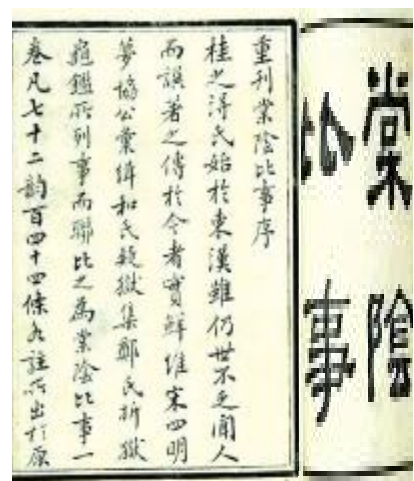 棠陰
比事
重刊棠陰比事序
桂之得氏始於東漢雖仍世不乏聞人
而譔著之傳於今者實鮮惟宋四明
夢協公彙緝和氏疑獄集鄭氏折獄
龜鑑所列事而聯比之為棠陰比事一
卷凡七十二韵百四十四條各註所出於原